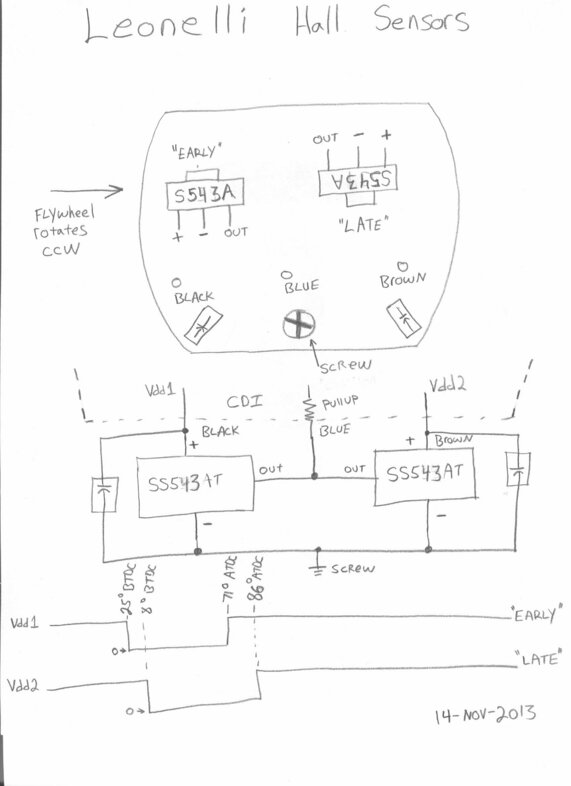 Leonelli Hall Sensors
"EARLY"
S543A
+ − OUT
OUT − +
S543A
"LATE"
FLYwheel
rotates
CCW
BLACK
BLUE
BROWN
SCREW
Vdd1
CDI
PULLUP
Vdd2
BLACK
BLUE
BROWN
+
+
SS543AT
OUT
OUT
SS543AT
−
−
SCREW
25° BTDC
8° BTDC
71° ATDC
86° ATDC
Vdd1
"EARLY"
0→
Vdd2
"LATE"
0→
14-NOV-2013